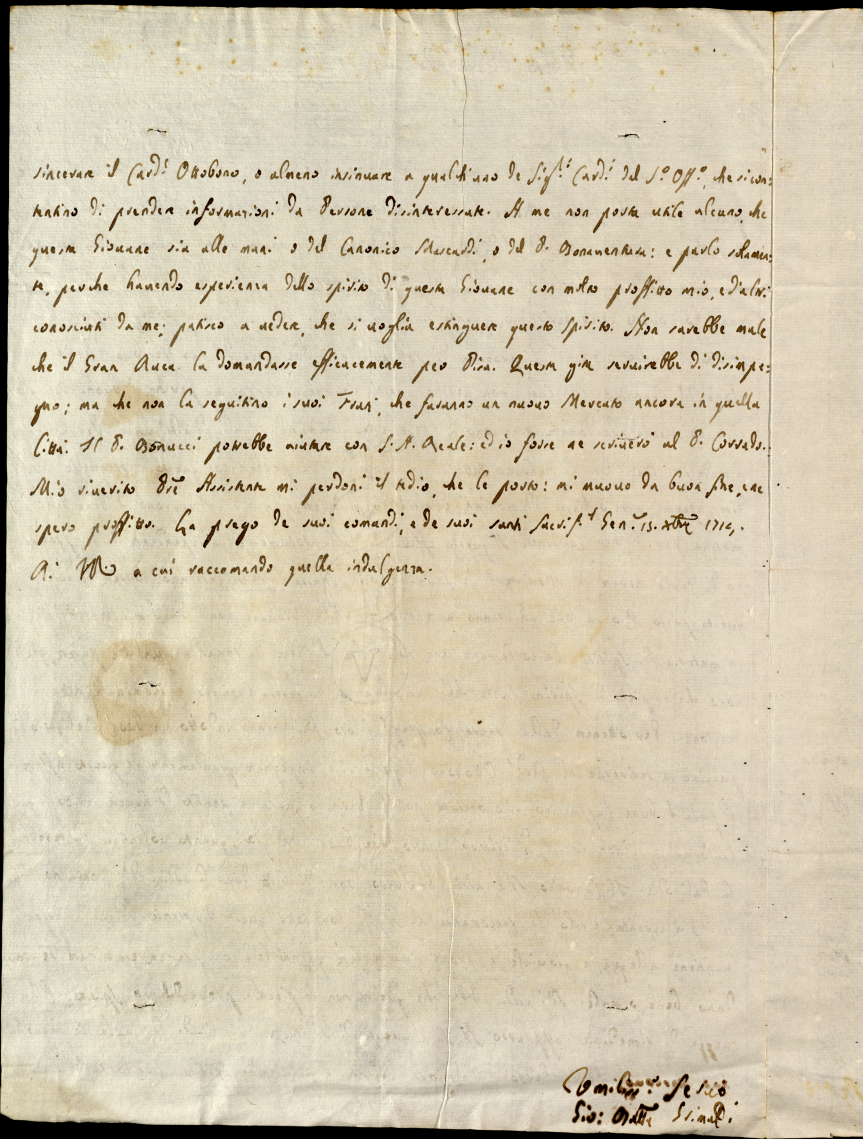 sincerare il Card.l Ottobono, o almeno insinuare a qualch'uno de Sig.ri Card.i del S.o Off.o, che si con:
tentino di prender informazioni da Persone disinteressate. A me non porta utile alcuno, che
questa Giovane sia alle mani o del Canonico Mascardi, o del P. Bonaventura: e parlo solamen:
te, perche havendo esperienza dello spirito di questa Giovane con molto proffitto mio, e d'altri
conosciuti da me; patisco a veder, che si voglia estinguere questo spirito. Non sarebbe male
che il Gran Duca la domandasse efficacemente per Pisa. Questa gita servirebbe di disimpe:
gno; ma che non la seguitino i suoi Frati, che faranno un nuovo Mercato ancora in quella
Città. Il P. Bonucci potrebbe aiutare con S. A. Reale: ed io forse ne scriverò al P. Corrado.
Mio riverito Pre Assistente mi perdoni il tedio, che le porto: mi muovo da buon fine, e ne
spero proffitto. La prego de suoi comandi, e de suoi santi Sacrif.i Gen.a 13. Xbre 1710.
Di VR a cui raccomando quella indulgenza.
Umiliss.o Servo
Gio: Batta Grimaldi